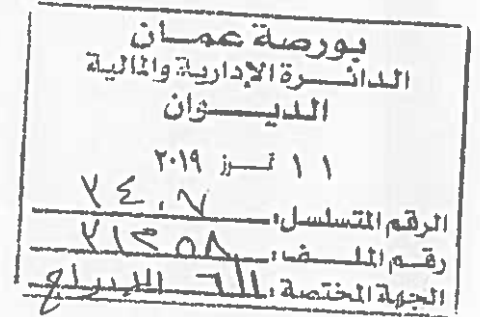 بورصة عمان
الدائرة الإدارية والمالية
الديوان
١١ تموز ٢٠١٩
الرقم المتسلسل: ٣٤٠٧
رقم الملف: ٣١٢٥٨
الجهة المختصة: الإدراج